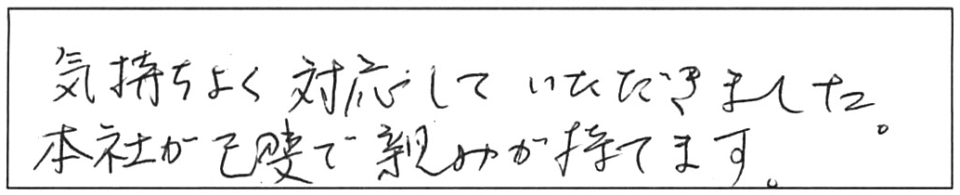 気持ちよく対応していただきました。
本社が で親みが持てます。